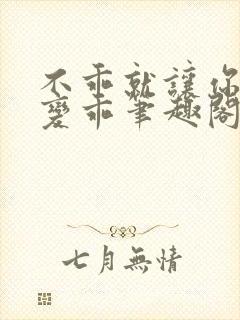 不乖就讓你
變乖筆趣閣
七月無情